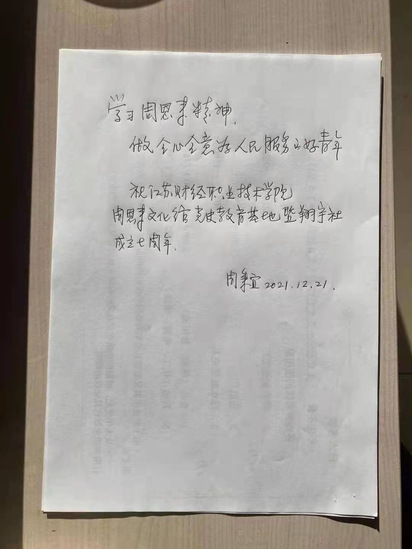 学习周恩来精神，
做全心全意为人民服务的好青年
祝江苏财经职业技术学院
周恩来文化 党史教育基地 翔宇社
成立七周年.
周秉宜 2021.12.21.